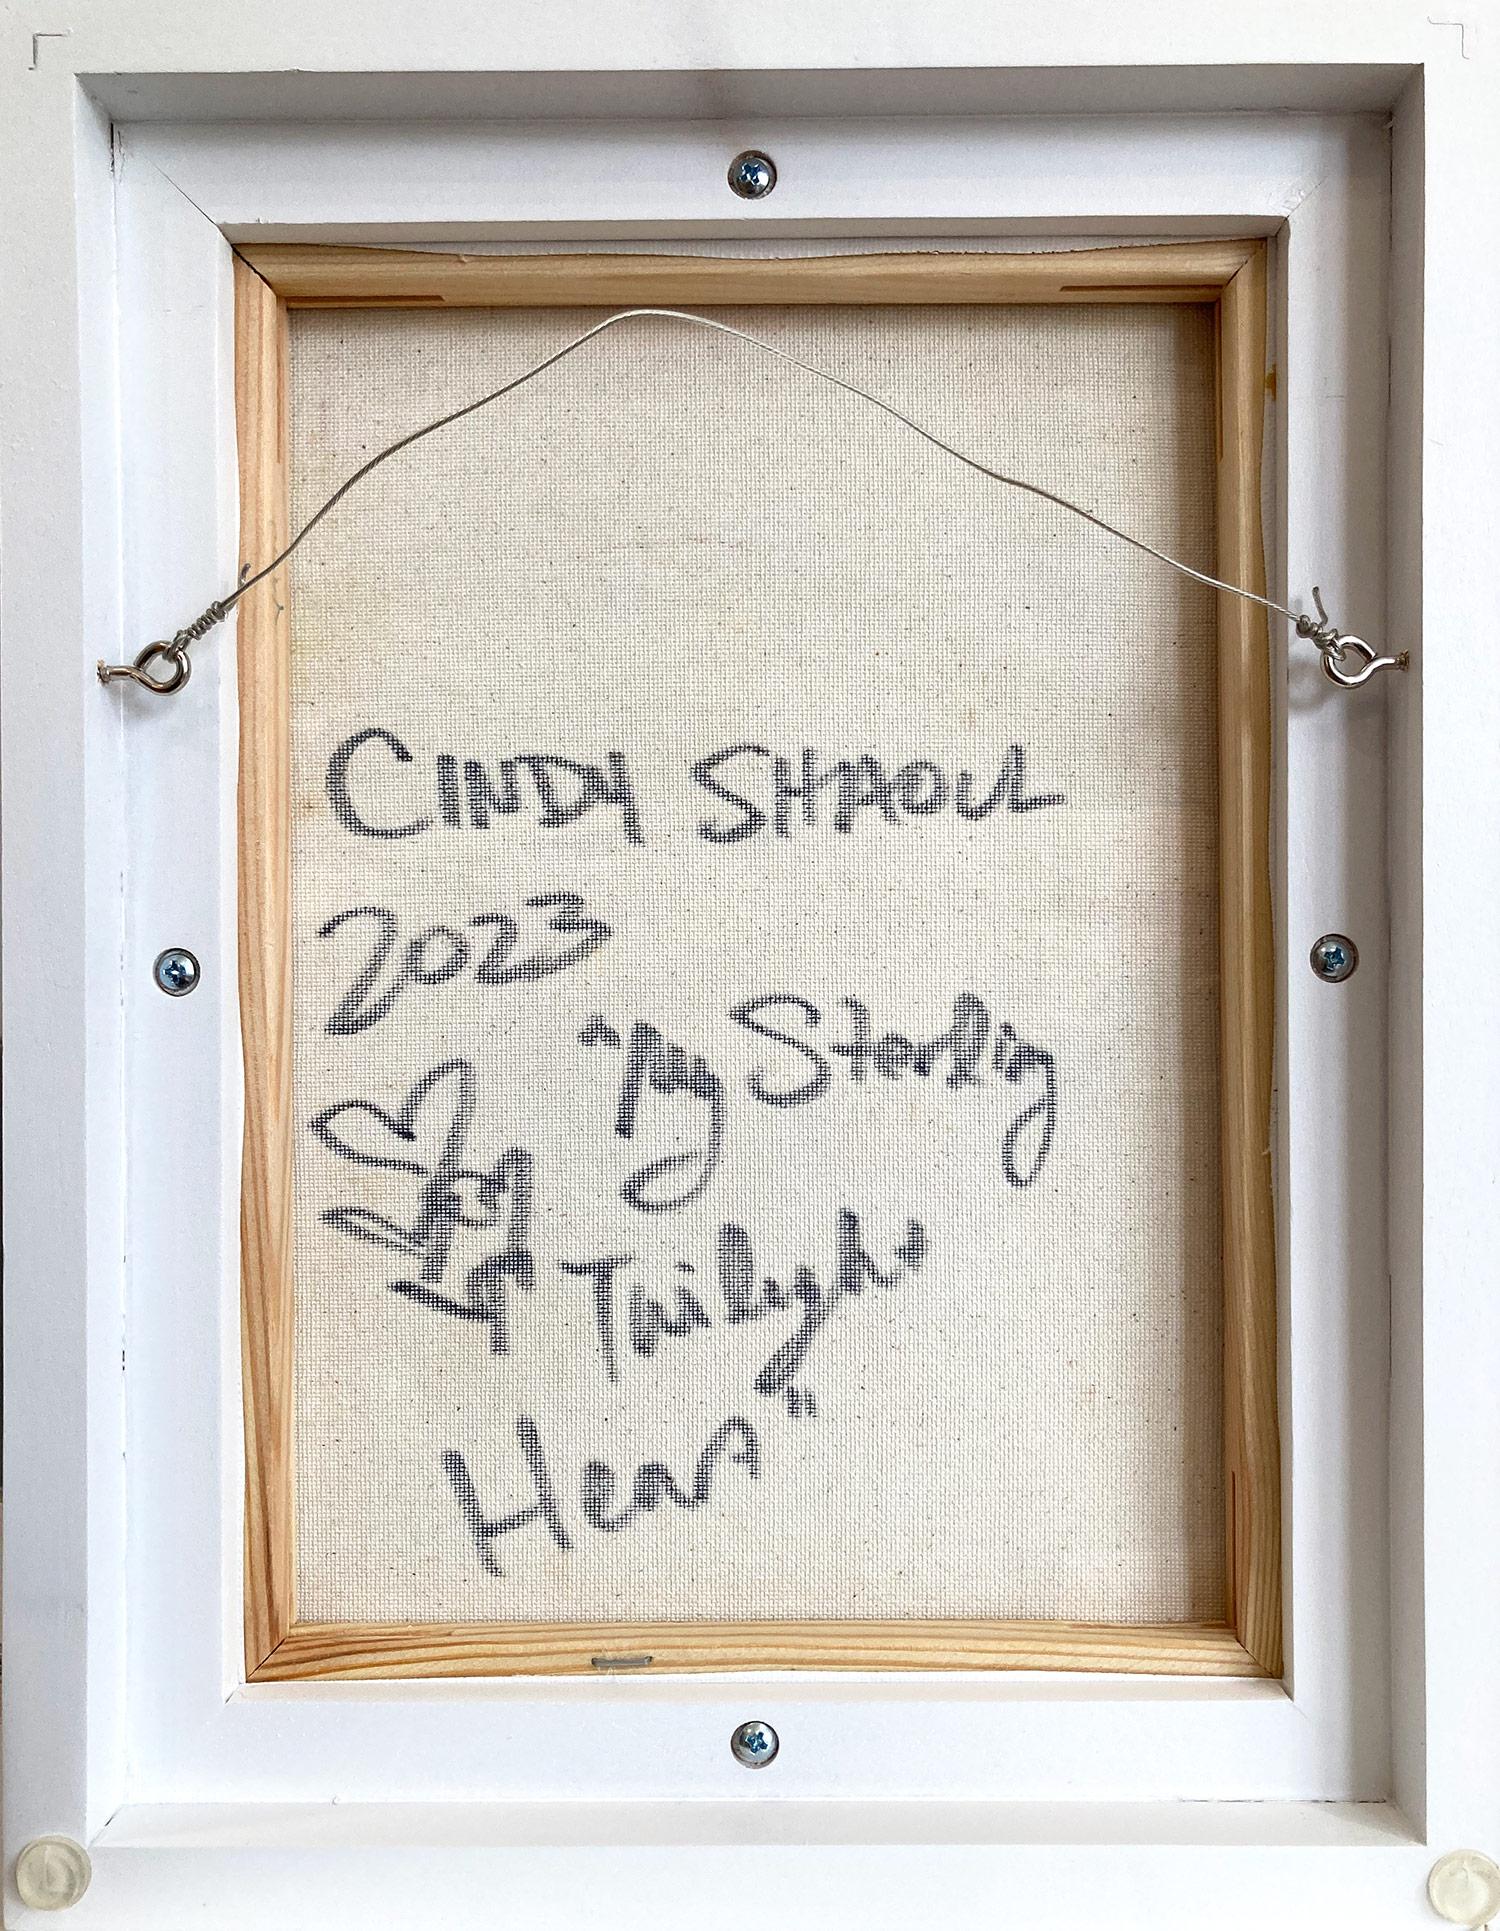 CINDY SHAOUL
2023
"My Sterling
Twilight
Hear"